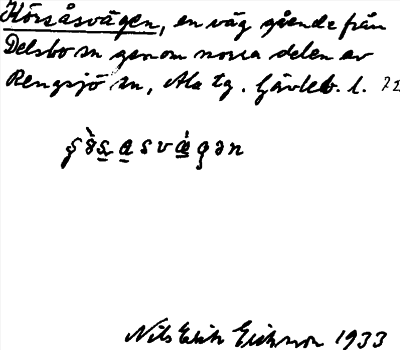 Körsåsvägen, en väg gående från
Delsbo sn genom norra delen av
Rengsjö sn, Ala tg. Gävleb. l.
Nils Erik Eriksson 1933